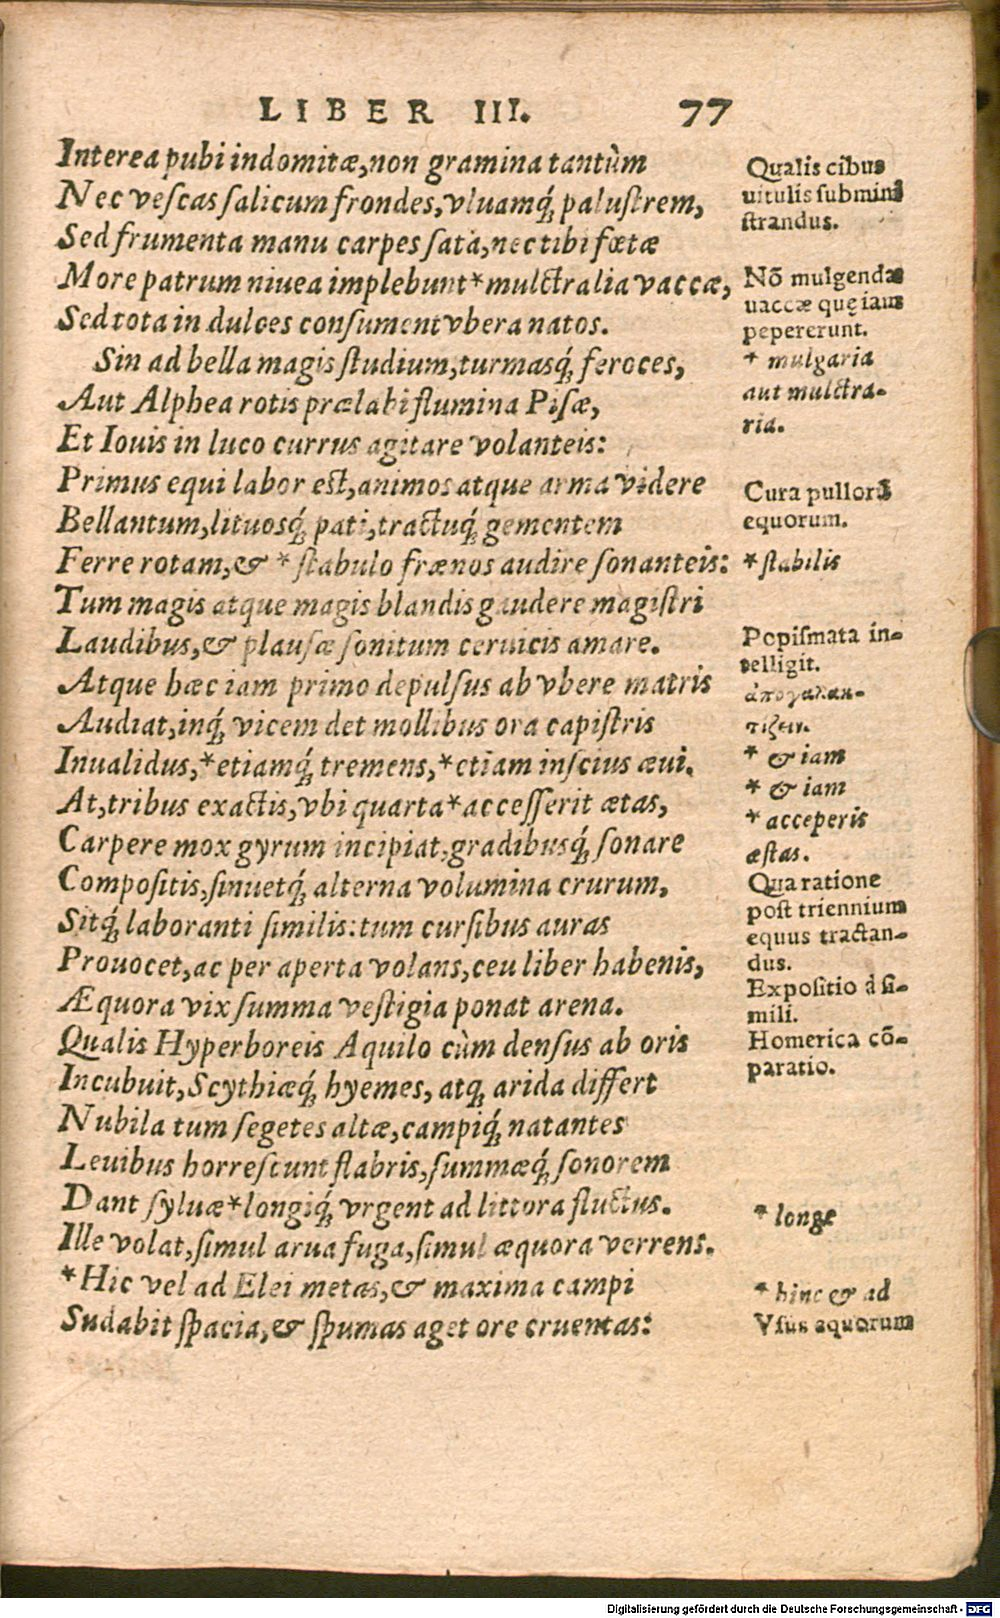 LIBER III. 77
Interea pubi indomitæ, non gramina tantùm
Nec vescas salicum frondes, vluamq́; palustrem,
Sed frumenta manu carpes sata, nec tibi fœtæ
More patrum niuea implebunt * mulctralia vaccæ,
Sed tota in dulces consument vbera natos.
Sin ad bella magis studium, turmasq́; feroces,
Aut Alphea rotis prælabi flumina Pisæ,
Et Iouis in luco currus agitare volanteis:
Primus equi labor est, animos atque arma videre
Bellantum, lituosq́; pati, tractuq́; gementem
Ferre rotam, & * stabulo frænos audire sonanteis:
Tum magis atque magis blandis gaudere magistri
Laudibus, & plausæ sonitum ceruicis amare.
Atque hæc iam primo depulsus ab vbere matris
Audiat, inq́; vicem det mollibus ora capistris
Inualidus, * etiamq́; tremens, * etiam inscius æui.
At, tribus exactis, vbi quarta * accesserit ætas,
Carpere mox gyrum incipiat, gradibusq́; sonare
Compositis, sinuetq́; alterna volumina crurum,
Sitq́; laboranti similis: tum cursibus auras
Prouocet, ac per aperta volans, ceu liber habenis,
Æquora vix summa vestigia ponat arena.
Qualis Hyperboreis Aquilo cùm densus ab oris
Incubuit, Scythiæq́; hyemes, atq; arida differt
Nubila tum segetes altæ, campiq́; natantes
Leuibus horrescunt flabris, summæq́; sonorem
Dant syluæ * longiq́; vrgent ad littora fluctus.
Ille volat, simul arua fuga, simul æquora verrens.
* Hic vel ad Elei metas, & maxima campi
Sudabit spacia, & spumas aget ore cruentas:
Qualis cibus
uitulis submini
strandus.
Nō mulgendæ
uaccæ quę iam
pepererunt.
* mulgaria
aut mulctra-
ria.
Cura pullorū
equorum.
* stabilis
Popismata in-
telligit.
ἀπογαλακ-
τίζειν.
* & iam
* & iam
* acceperis
æstas.
Qua ratione
post triennium
equus tractan-
dus.
Expositio à si-
mili.
Homerica cō-
paratio.
* longe
* hinc & ad
Vsus equorum
Digitalisierung gefördert durch die Deutsche Forschungsgemeinschaft - DFG